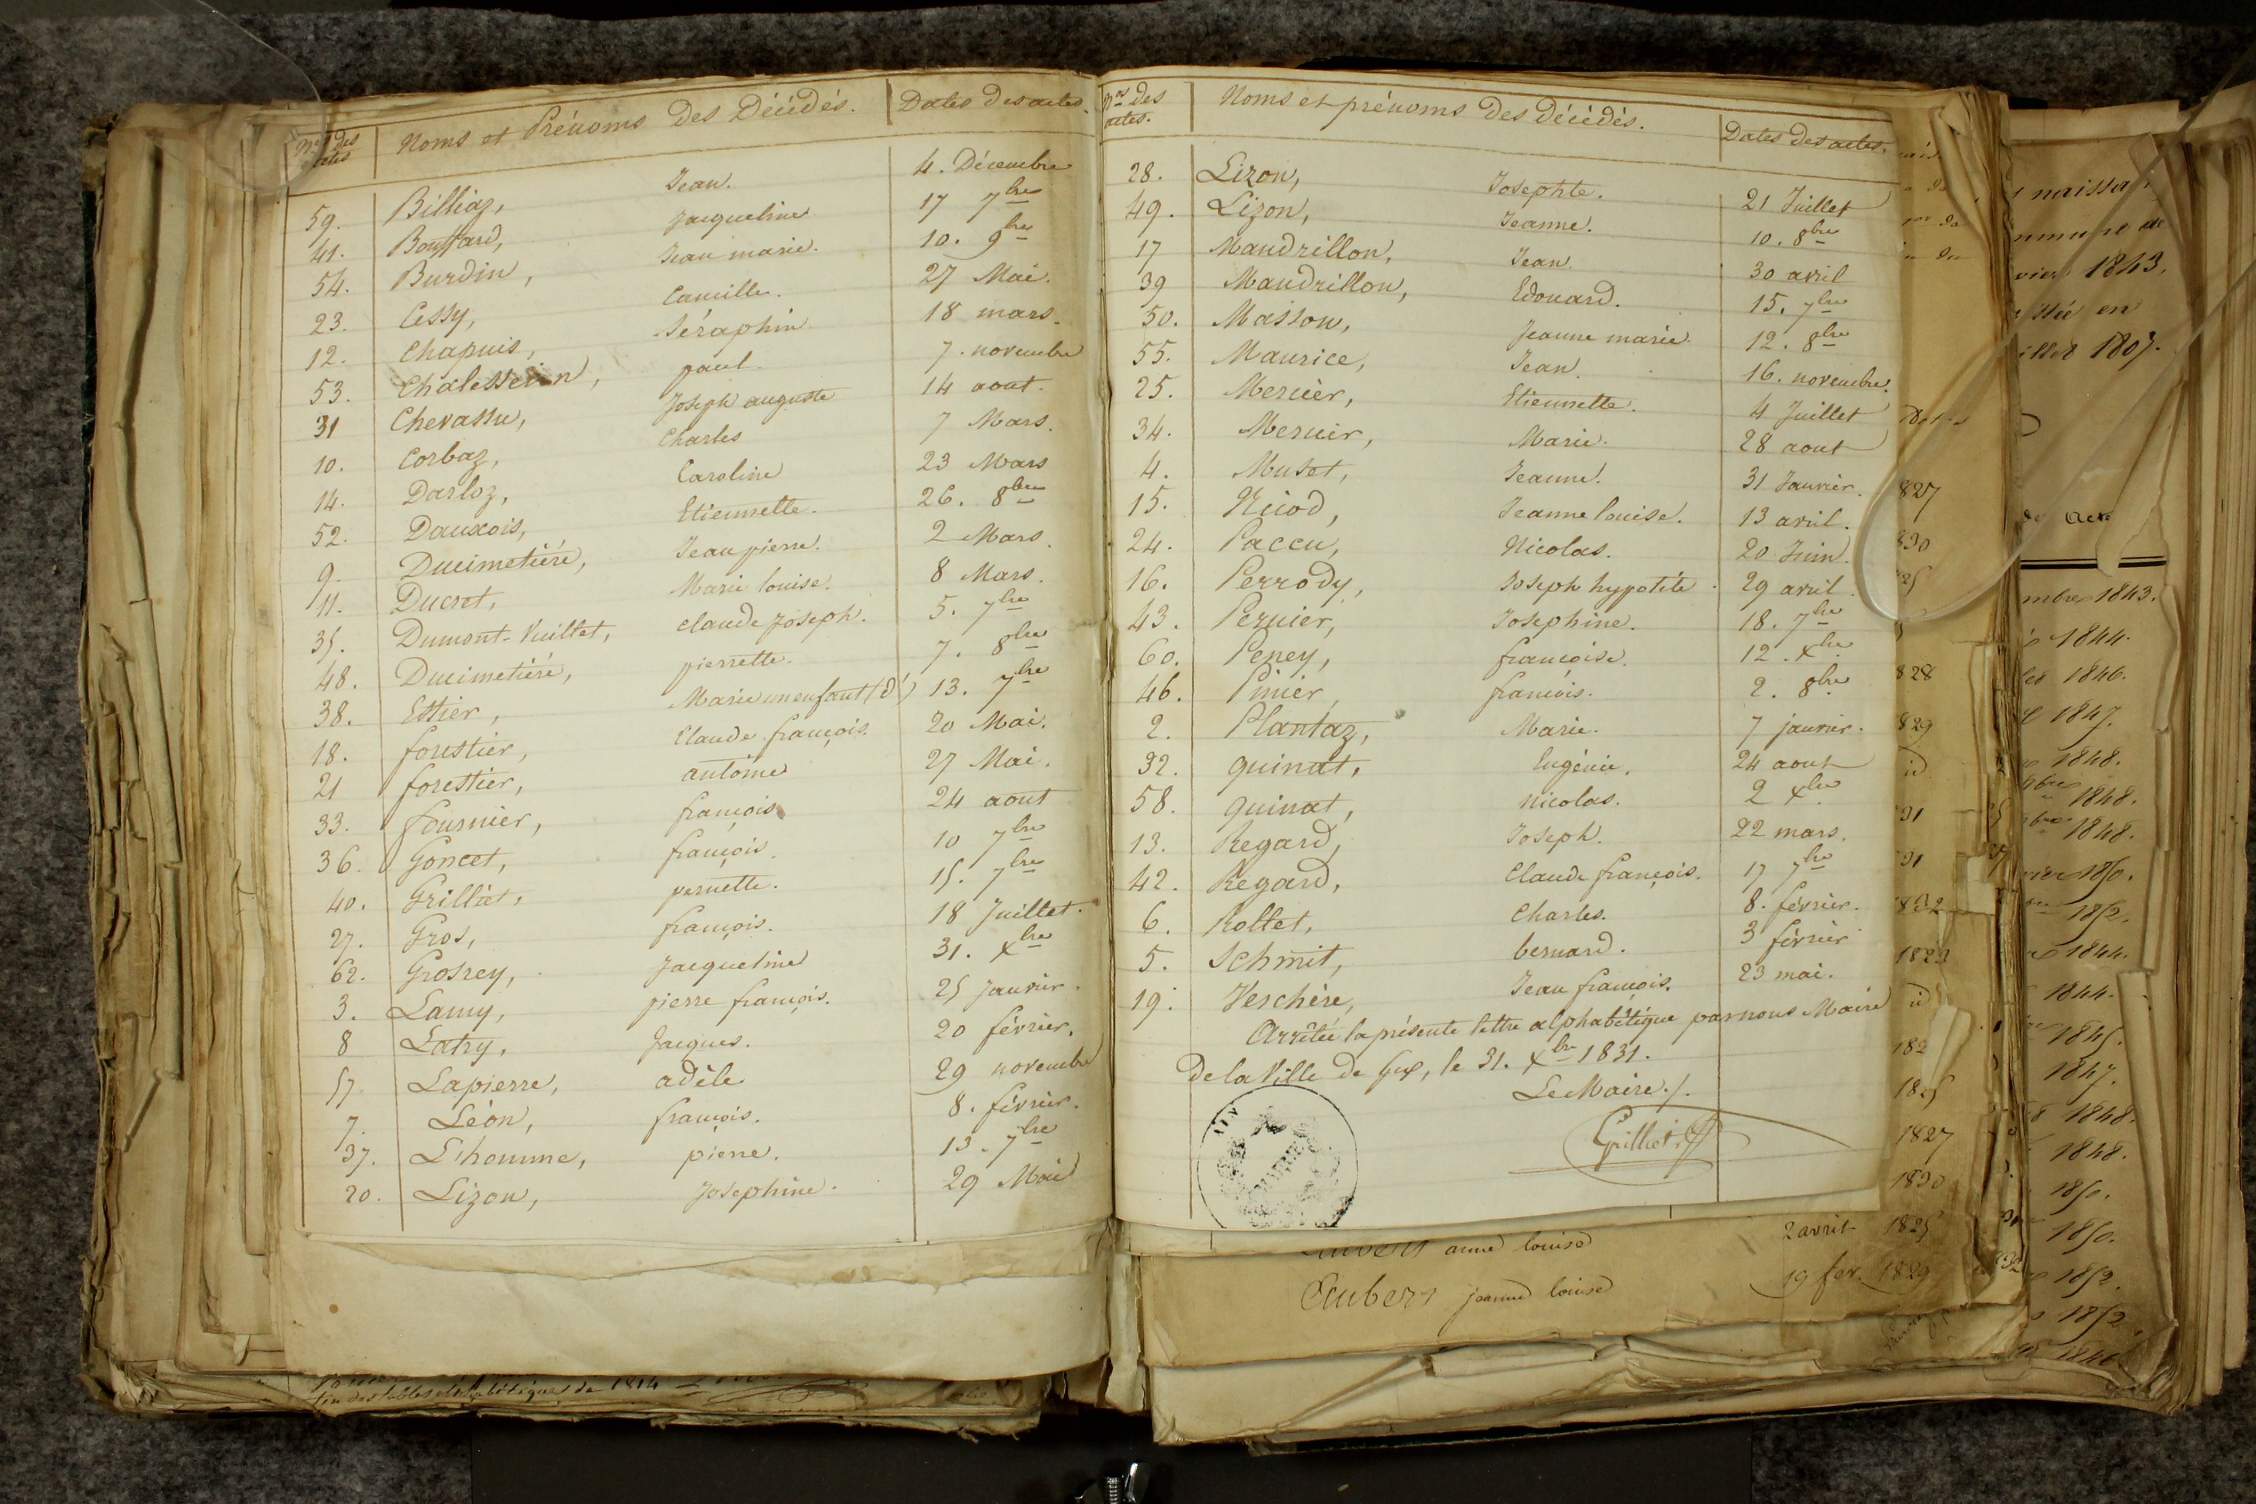 Nos des actes | Noms et Prénoms des Décédés. | Dates des actes.
59. Billiaz, Jean. 4. Décembre
41. Bouffard, Jacqueline 17 7bre
54. Burdin, Jean marie. 10. 9bre
23. Cessy, Camille. 27 Mai.
12. Chapuis, Séraphin 18 mars.
53. Chalesseven, paul 7. novembre
31 Chevassu, Joseph auguste 14 aout.
10. Corbaz, Charles 7 Mars.
14. Darloz, Caroline 23 Mars
52. Dauxois, Etiennette. 26. 8bre
9. Ducimetiéré, Jean pierre. 2 Mars.
11. Ducret, Marie louise. 8 Mars.
35. Dumont-Vuillet, claude Joseph. 5. 7bre
48. Ducimetiéré, pierrette. 7. 8bre
38. Estier, Marie un enfant (d') 13. 7bre
18. forestier, Claude françois. 20 Mai.
21 forestier, antoine 27 Mai.
33. fournier, françois 24 aout
36. Goncet, françois. 10 7bre
40. Grilliet, pernette. 15. 7bre
27. Gros, françois. 18 Juillet.
62. Grosrey, Jacqueline 31. Xbre
3. Lamy, pierre françois. 25 Janvier.
8 Latry, Jacques. 20 février.
57 Lapierre, adèle 29 novembre
7. Léon, françois. 8. février.
37. L'homme, pierre. 13. 7bre
20. Lizon, Josephine. 29 Mai
Nos des actes. | Noms et prénoms des décédés. | Dates des actes.
28. Lizon, Josephte. 21 Juillet
49. Lizon, Jeanne. 10. 8bre
17 Mandrillon, Jean. 30 avril
39 Mandrillon, Edouard. 15. 7bre
50. Masson, Jeanne marie 12. 8bre
55. Maurice, Jean. 16. novembre.
25. Mercier, Etiennette. 4 Juillet
34. Mercier, Marie. 28 aout
4. Musot, Jeanne. 31 Janvier.
15. Nicod, Jeanne louise. 13 avril.
24. Paccu, Nicolas. 20 Juin.
16. Perrody, Joseph hypolite. 29 avril.
43. Pernier, Josephine. 18. 7bre
60. Peney, françoise. 12. Xbre
46. Pinier françois. 2. 8bre
2. Plantaz, Marie. 7 janvier.
32. quinat, Eugénie. 24 aout
58. quinat, Nicolas. 2 Xbre
13. Regard, Joseph. 22 mars.
42. Regard, Claude françois. 17 7bre
6. Rollet, Charles. 8. février.
5. Schmit, bernard. 3 février
19. Verchère, Jean françois. 23 mai.
Arrêtée la présente lettre alphabétique par nous Maire
De la Ville de Gex, le 31. Xbre 1831.
Le Maire./.
Grilliet
AIN
anne louise 2 avril 1825
Aubert jeanne louise 19 fev. 1829
fin des tables alphabétiques de 1814
naissa
1843.
1807.
827
828
829
1832
1823
1825
1827
1830
1843.
1844.
1846.
1847.
1848.
1848.
1848.
1850.
1852.
1844.
1844.
1845.
1847.
1848.
1848.
1850.
1850.
1852.
1852